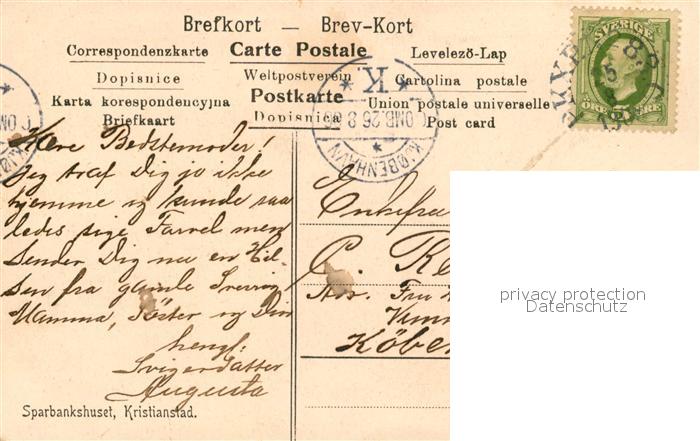 Brefkort — Brev-Kort
Correspondenzkarte Carte Postale Levelező-Lap
Dopisnice Weltpostverein Cartolina postale
Karta korespondencyjna Postkarte Union postale universelle
Briefkaart Dopisnica Post card
SVERIGE
ÖRE 5 ÖRE
KJØBENHAVN
K.
OMB. 26 8
Kære Bedstemoder!
Jeg traf Dig jo ikke
hjemme og kunde saa
ledes sige Farvel men
sender Dig nu en Hil-
sen fra gamle Sverrig
Mamma, Söster og Din
hengf.
Svigerdatter
Augusta
Enkefru
C.
Str. Fru
Köbe
Sparbankshuset, Kristianstad.
privacy protection
Datenschutz